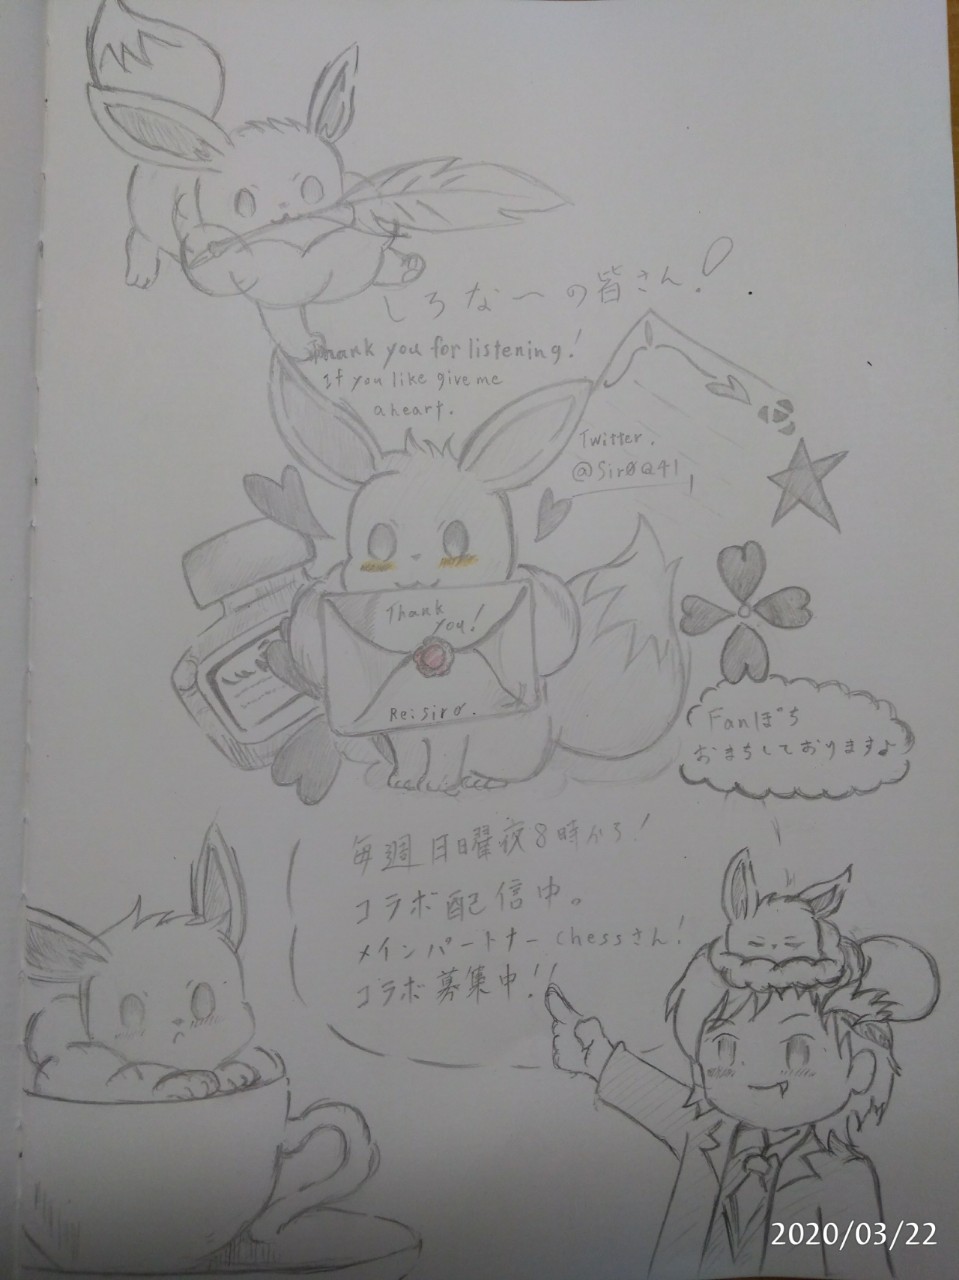 しろなーの皆さん!
Thank you for listening!
If you like give me
a heart.
Twitter.
@Sir0Q41
Thank
you!
Re:sir0.
Fanぼち
おまちしておりますよ
毎週日曜夜8時から!
コラボ配信中。
メインパートナーchessさん!
コラボ募集中!!
2020/03/22